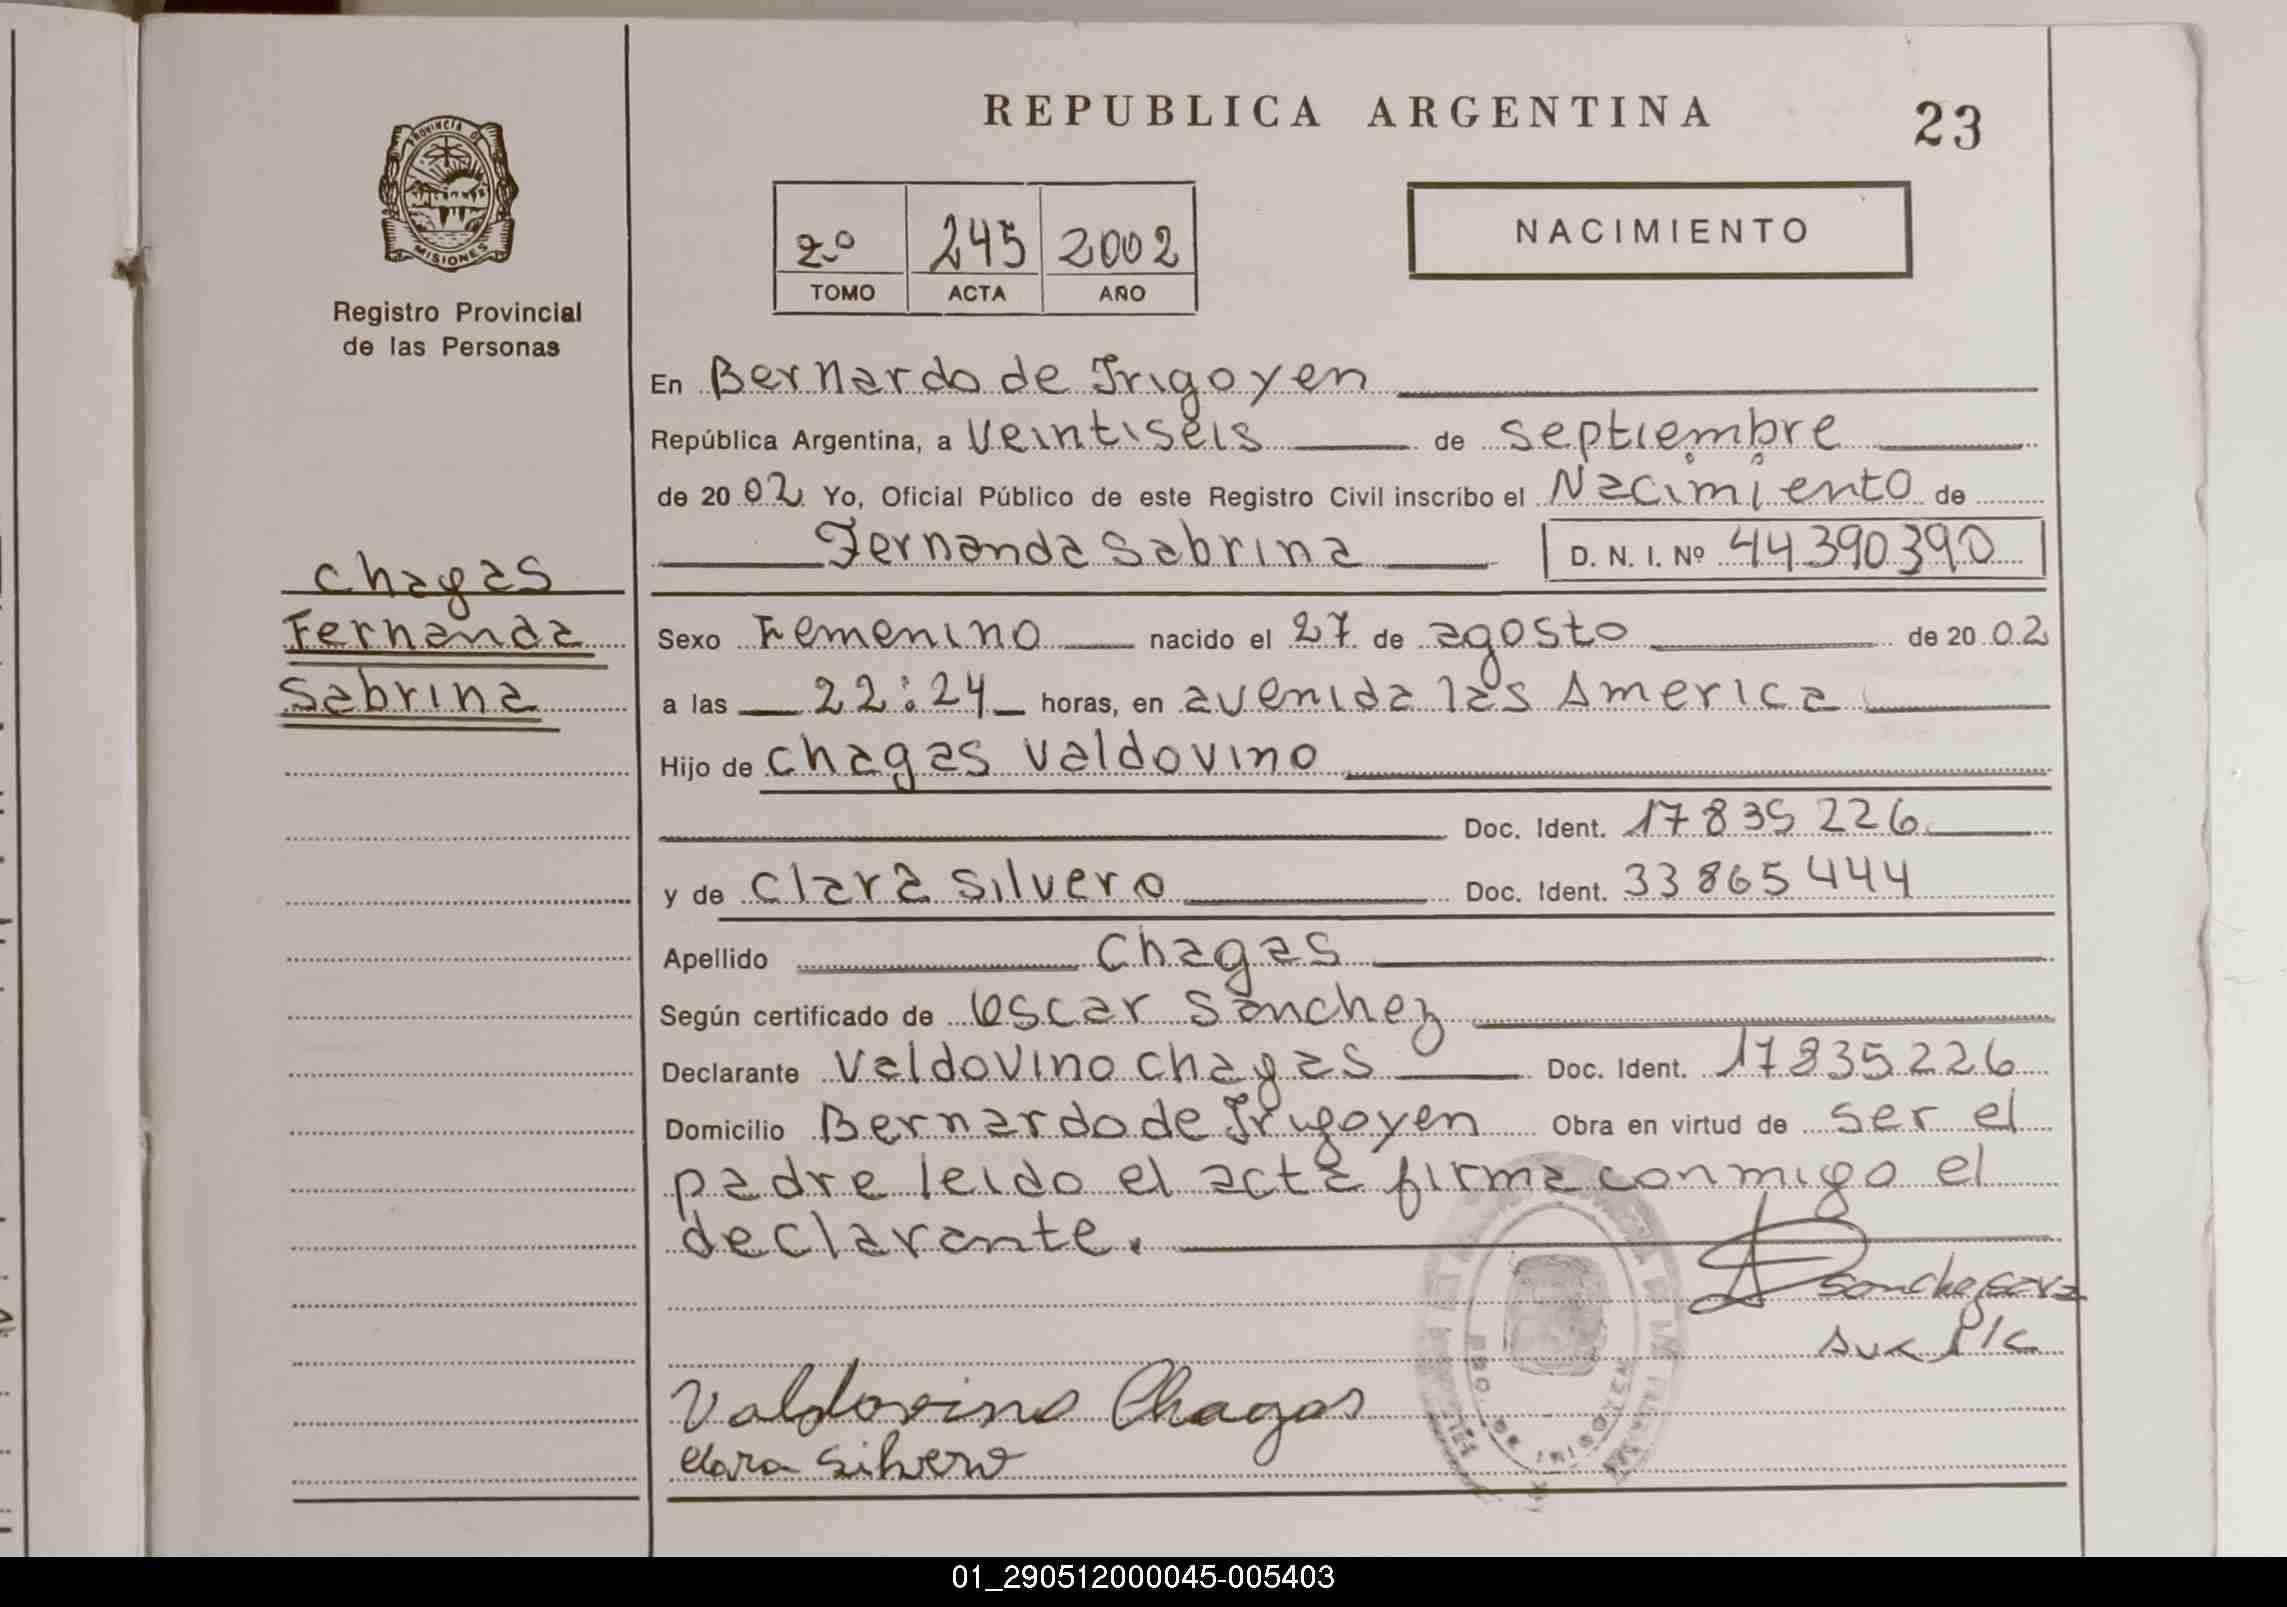 REPUBLICA ARGENTINA
23
PROVINCIA DE
MISIONES
Registro Provincial
de las Personas
2º 245 2002
TOMO ACTA AÑO
NACIMIENTO
En Bernardo de Irigoyen
República Argentina, a Veintiseis de septiembre
de 2002 Yo, Oficial Público de este Registro Civil inscribo el Nacimiento de
Fernanda Sabrina D. N. I. Nº 44390390
Chagas
Fernanda
Sabrina
Sexo Femenino nacido el 27 de agosto de 2002
a las 22:24 horas, en avenida las America
Hijo de Chagas Valdovino
Doc. Ident. 17835226
y de Clara Silvero Doc. Ident. 33865444
Apellido Chagas
Según certificado de Oscar Sanchez
Declarante Valdovino Chagas Doc. Ident. 17835226
Domicilio Bernardo de Irigoyen Obra en virtud de ser el
padre leido el acta firma conmigo el
declarante.
Valdovino Chagas
Clara Silvero
BDO. DE IRIGOYEN
01_290512000045-005403